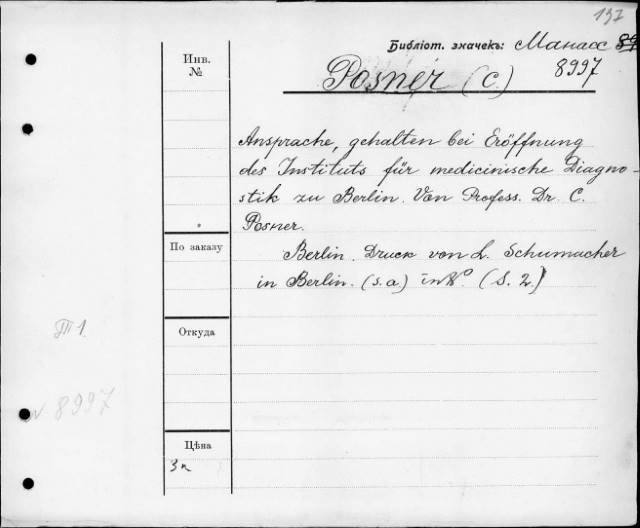 137
Библіот. значекъ: Манасс 89
8997
Posner (C.)
Инв.
№
Ansprache, gehalten bei Eröffnung
des Instituts für medicinische Diagno-
stik zu Berlin. Von Profess. Dr. C.
Posner.
По заказу
Berlin. Druck von L. Schumacher
in Berlin. (s.a.) in 8º. (S. 2.)
III 1.
Откуда
N 8997
Цѣна
3к